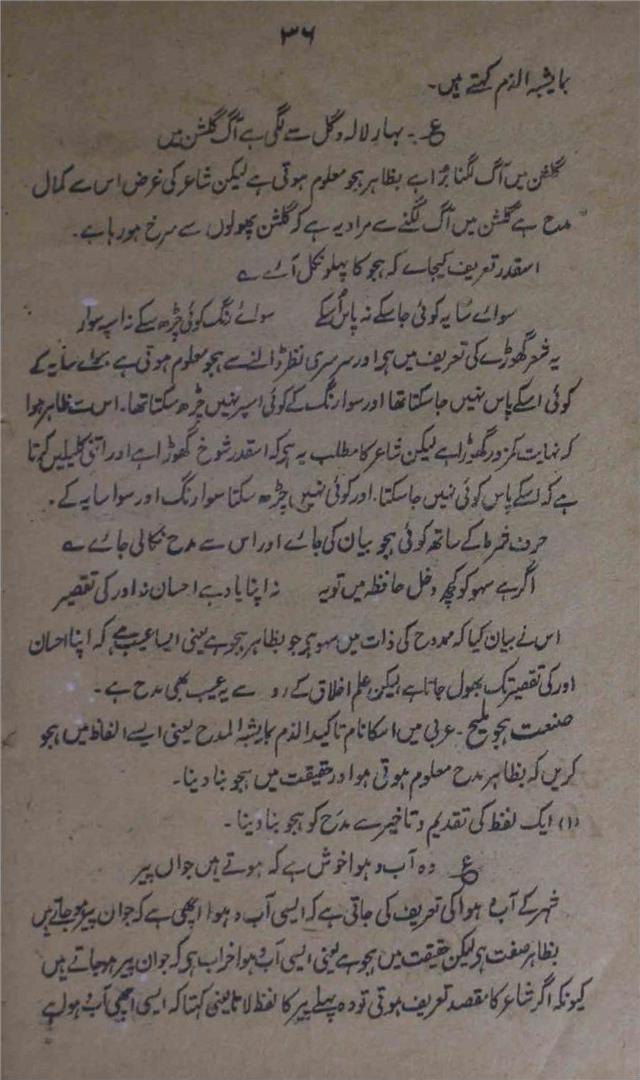 ۳۶
بمایشبہ الذم کہتے ہیں۔
ع۔ بہار لالہ و گل سے لگی ہے آگ گلشن میں
گلشن میں آگ لگنا بُرا ہے بظاہر ہجو معلوم ہوتی ہے لیکن شاعر کی غرض اس سے کمال
مدح ہے گلشن میں آگ لگنے سے مراد یہ ہے کہ گلشن پھولوں سے سرخ ہو رہا ہے۔
اسقدر تعریف کیجاے کہ ہجو کا پہلو نکل آئے ؎
سوائے سایہ کوئی جا سکے نہ پاس اُسکے سوائے رنگ کوئی چڑھ سکے نہ اسپہ سوار
یہ شعر گھوڑے کی تعریف میں ہے اور سرسری نظر ڈالنے سے ہجو معلوم ہوتی ہے بجاے سایہ کے
کوئی اسکے پاس نہیں جا سکتا تھا اور سوا رنگ کے کوئی اسپر نہیں چڑھ سکتا تھا۔ اس سے ظاہر ہوا
کہ نہایت کمزور گھوڑا ہے لیکن شاعر کا مطلب یہ ہے کہ اسقدر شوخ گھوڑا ہے اور اتنی کلیلیں کرتا
ہے کہ اسکے پاس کوئی نہیں جا سکتا۔ اور کوئی نہیں چڑھ سکتا سوا رنگ اور سوا سایہ کے۔
حرف شرط کے ساتھ کوئی ہجو بیان کی جائے اور اس سے مدح نکالی جائے ؎
اگر ہے سہو کو کچھ دخل حافظہ میں تو یہ نہ اپنا یاد ہے احسان نہ اور کی تقصیر
اس نے بیان کیا کہ ممدوح کی ذات میں سہو ہے جو بظاہر ہجو ہے یعنی ایسا عیب ہے کہ اپنا احسان
اور کی تقصیر تک بھول جاتا ہے لیکن علم اخلاق کے رو سے یہ عیب بھی مدح ہے۔
صنعت ہجو ملیح۔ عربی میں اسکا نام تاکید الذم بمایشبہ المدح یعنی ایسے الفاظ میں ہجو
کریں کہ بظاہر مدح معلوم ہوتی ہو اور حقیقت میں ہجو بنا دینا۔
(۱) ایک لفظ کی تقدیم و تاخیر سے مدح کو ہجو بنا دینا۔
ع وہ آب و ہوا خوش ہے کہ ہوتے ہیں جواں پیر
شہر کے آب و ہوا کی تعریف کی جاتی ہے کہ ایسی آب و ہوا اچھی ہے کہ جوان پیر ہو جاتے ہیں
بظاہر صفت ہے لیکن حقیقت میں ہجو ہے یعنی ایسی آب و ہوا خراب ہے کہ جوان پیر ہو جاتے ہیں
کیونکہ اگر شاعر کا مقصد تعریف ہوتی تو وہ پہلے پیر کا لفظ لاتا یعنی کہتا کہ ایسی اچھی آب و ہوا ہے